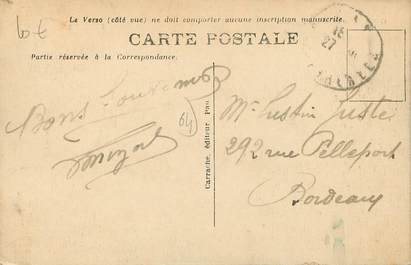 6 €
Le Verso (côté vue) ne doit comporter aucune inscription manuscrite.
CARTE POSTALE
Partie réservée à la Correspondance.
27
Bons Souvenirs
64
Carrache, éditeur, Pau.
Mr Justin Juste
292 rue Pelleport
Bordeaux